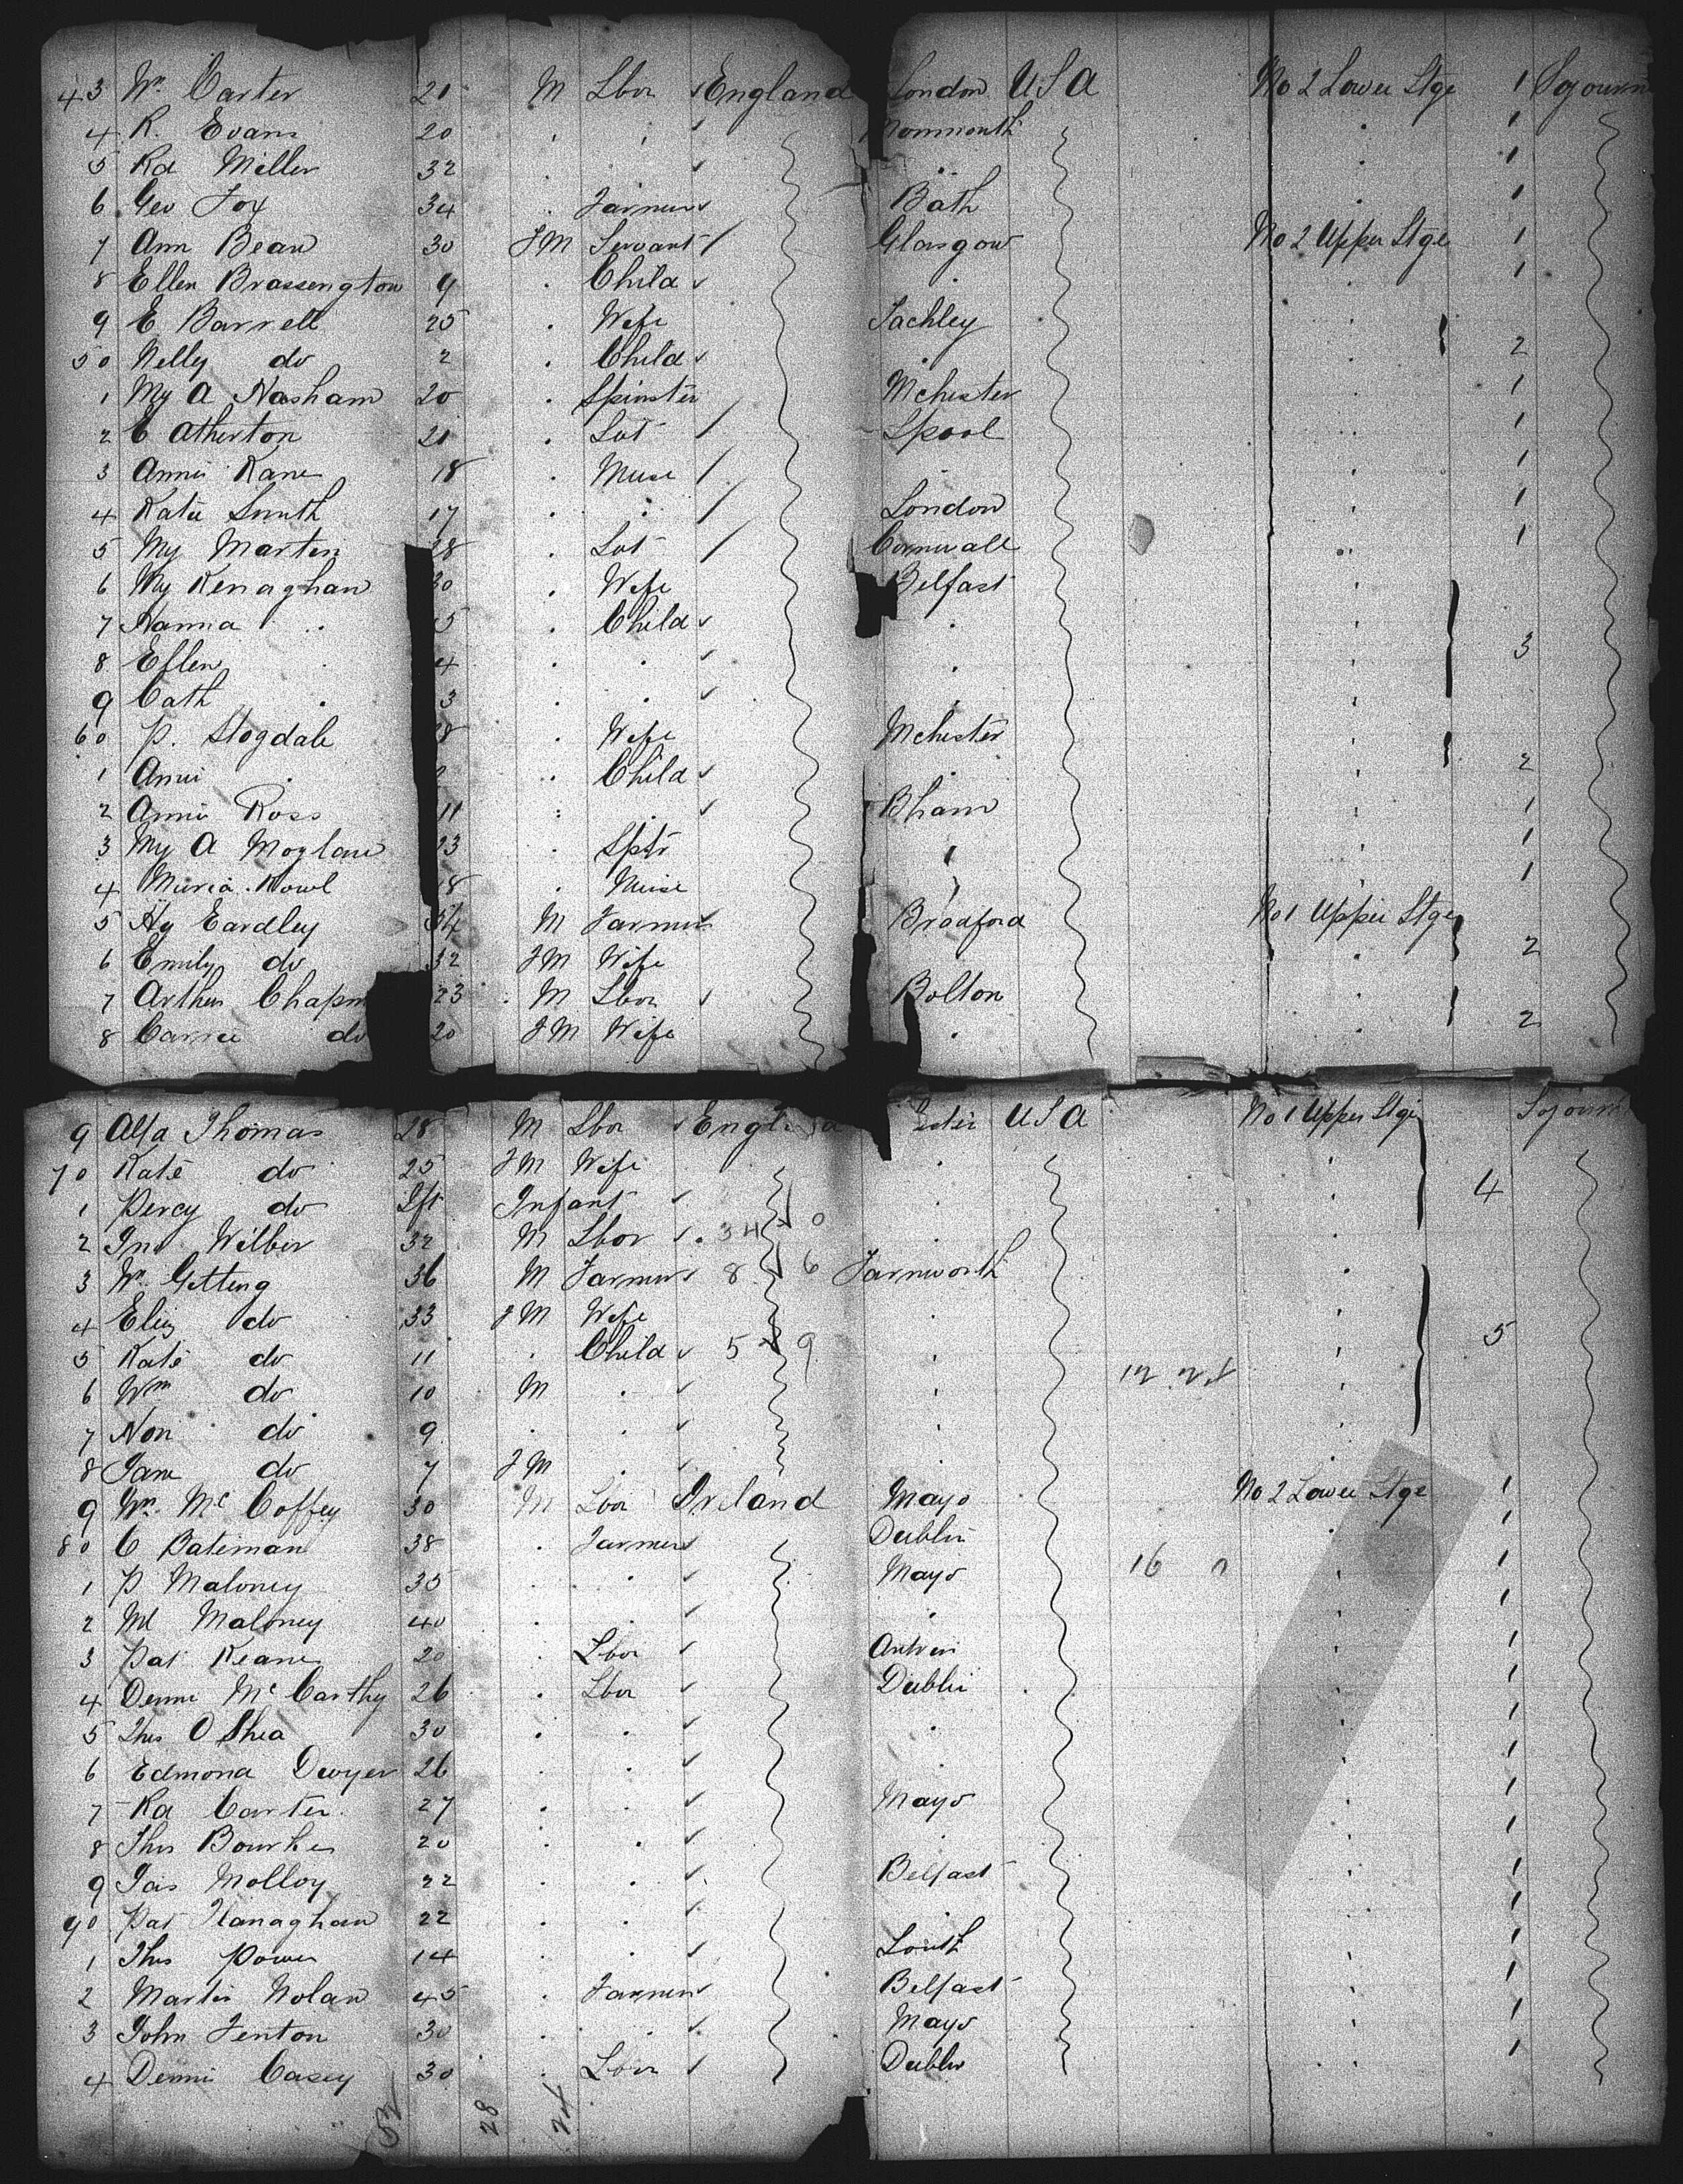 43 Wm Carter 21 M Lbor England London USA No 2 Lower Stge 1 Sojourn
4 R. Evans 20 Monmouth 1
5 Rd Miller 32 1
6 Geo Fox 34 Farmer Bath 1
7 Ann Bean 30 FM Servant Glasgow No 2 Upper Stge 1
8 Ellen Brassengton 9 Child 1
9 E Barrell 25 Wife Tachley
50 Nelly do 2 Child 2
1 My A Nasham 20 Spinster Mchester 1
2 C Atherton 21 Lpool 1
3 Annie Kane 18 1
4 Katie Smith 17 London 1
5 My Marten 28 Cornwall 1
6 My Kenaghan 30 Wife Belfast
7 Hanna 5 Child
8 Ellen 4 3
9 Cath 3
60 P. Stogdale 28 Wife Mchester
1 Annie Child 2
2 Annie Ross 11 Bham 1
3 My A Moylan 23 Sptr 1
4 Maria Nowl 18 Nurse 1
5 Hy Eardley 34 M Farmer Bradford No 1 Upper Stge
6 Emily do 32 FM Wife 2
7 Arthur Chapm 23 M Lbor Bolton
8 Carrie do 20 FM Wife 2
9 Alfd Thomas 28 M Lbor England USA No 1 Upper Stge Sojourn
70 Kate do 25 FM Wife
1 Percy do Ift Infant 4
2 Jno Wilber 32 M Lbor 34 0
3 Wm Getting 36 M Farmer 8 6 Farnworth
4 Eliz do 33 FM Wife
5 Kate do 11 Child 5 9 5
6 Wm do 10 M 12
7 Non do 9
8 Jane do 7 FM
9 Wm Mc Coffey 30 M Lbor Ireland Mayo No 2 Lower Stge 1
80 C Bateman 38 Farmer Dublin 1
1 P Maloney 35 Mayo 16 1
2 Ml Maloney 40 1
3 Pat Keane 20 Lbor Antrim 1
4 Denni Mc Carthy 26 Lbor Dublin 1
5 Ths O Shea 30 1
6 Edmond Dwyer 26 1
7 Rd Carter 27 Mayo 1
8 Ths Bourke 20 1
9 Jas Molloy 22 Belfast 1
90 Pat Flanaghan 22 1
1 Ths Power 14 Louth 1
2 Martin Nolan 45 Farmer Belfast 1
3 John Fenton 30 Mayo 1
4 Denni Casey 30 Lbor Dublin 1
28